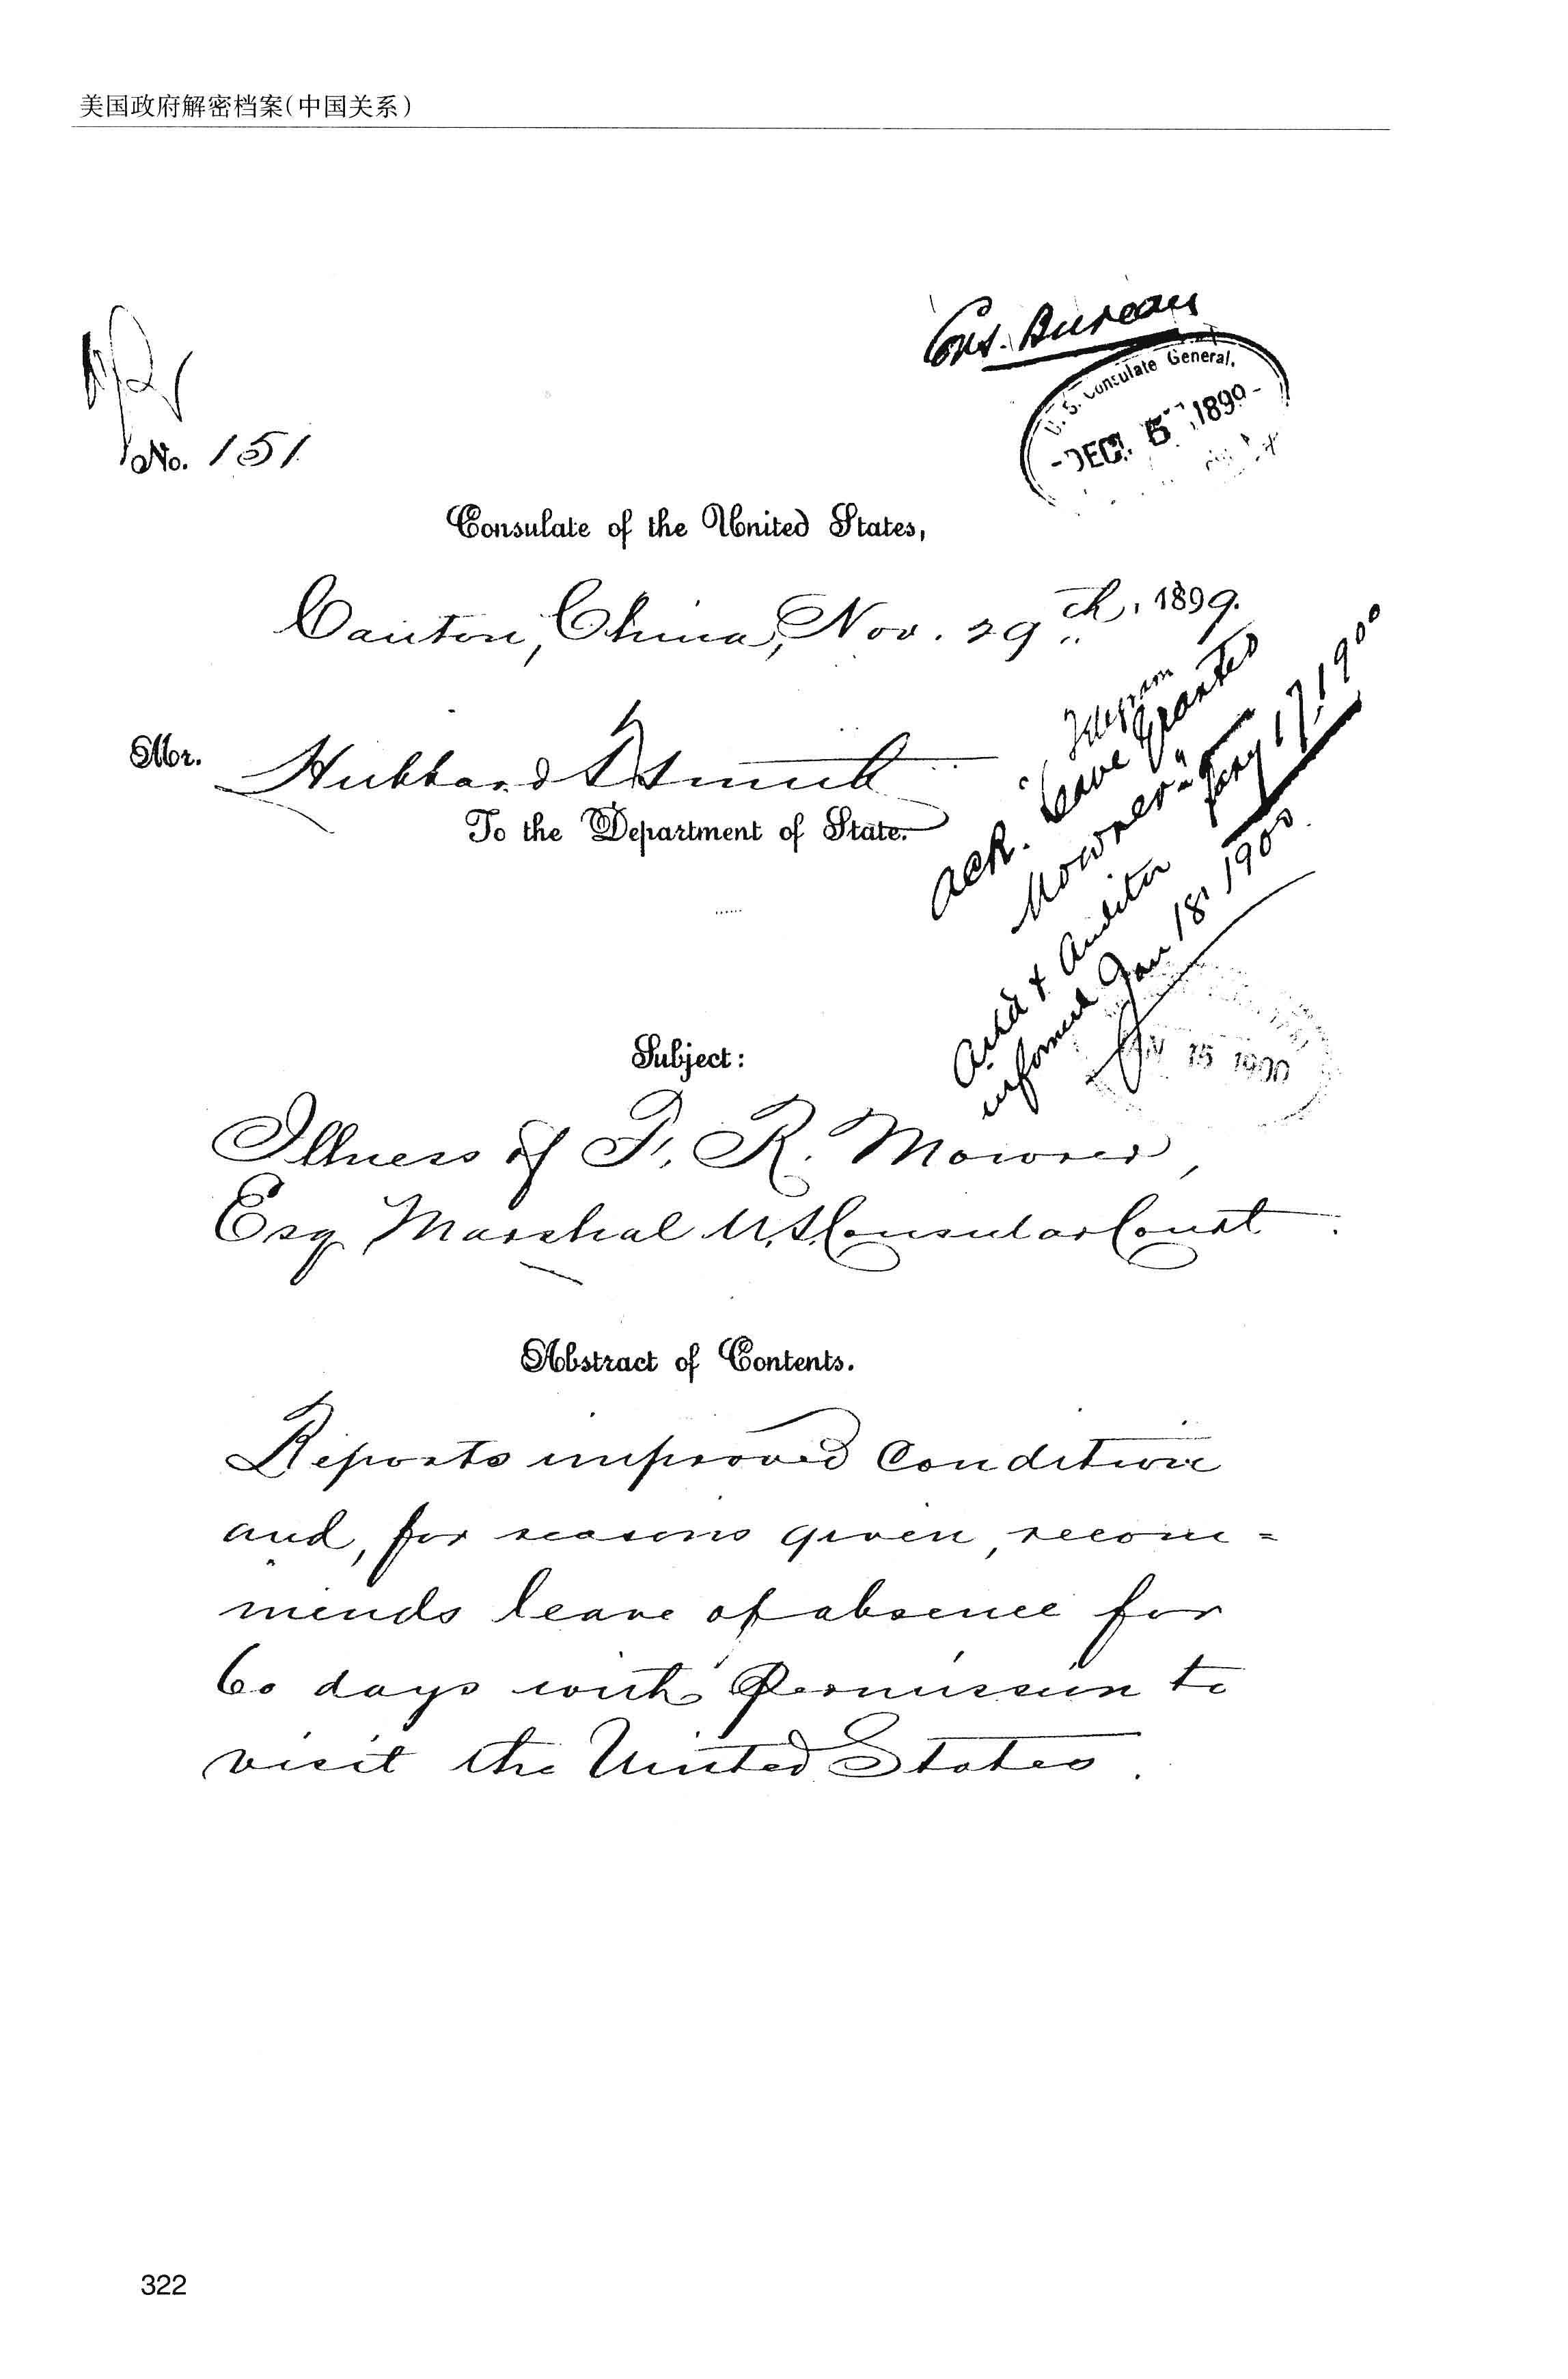 美国政府解密档案(中国关系)
Cons. Bureau
U. S. Consulate General.
DEC. 5 1899
No. 151.
Consulate of the United States,
Canton, China, Nov. 29th, 1899.
Mr. Hubbard T. Smith
To the Department of State.
Telegram
Ack. "Leave granted
Mowrer" Jany 17, 1900
Ack'd & Auditor
informed Jan 18, 1900.
15 1900
Subject:
Illness of F. R. Mowrer,
Esq. Marshal U.S. Consular Court.
Abstract of Contents.
Reports improved Condition
and, for reasons given, recom=
mends leave of absence for
60 days with Permission to
visit the United States.
322